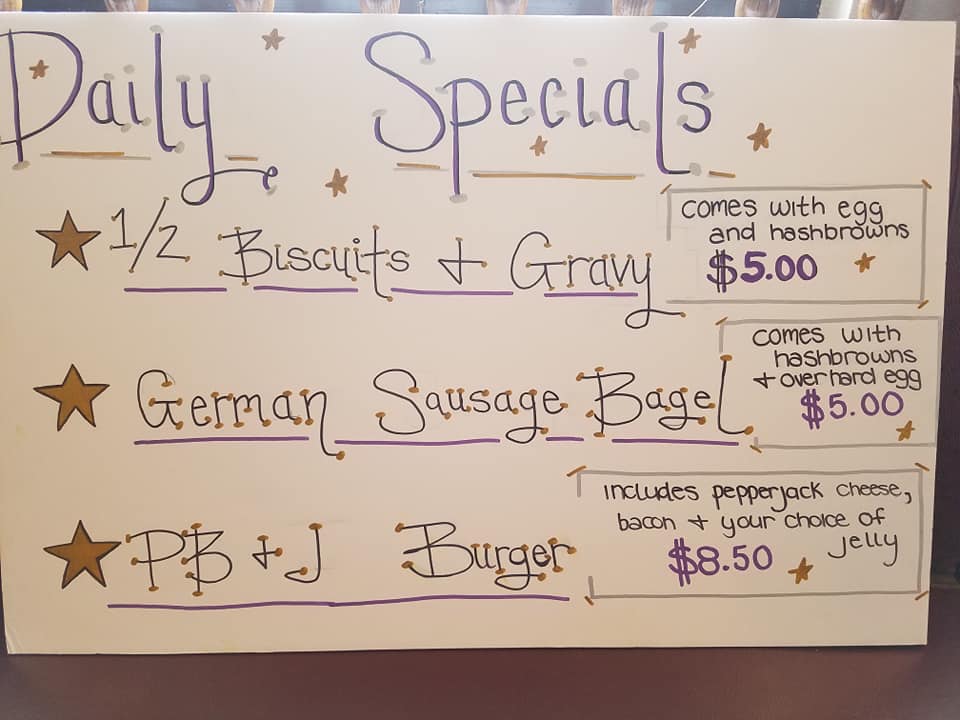 Daily Specials
1/2 Biscuits + Gravy
comes with egg
and hashbrowns
$5.00
German Sausage Bagel
comes with
hashbrowns
+ over hard egg
$5.00
PB + J Burger
includes pepperjack cheese,
bacon + your choice of
jelly
$8.50